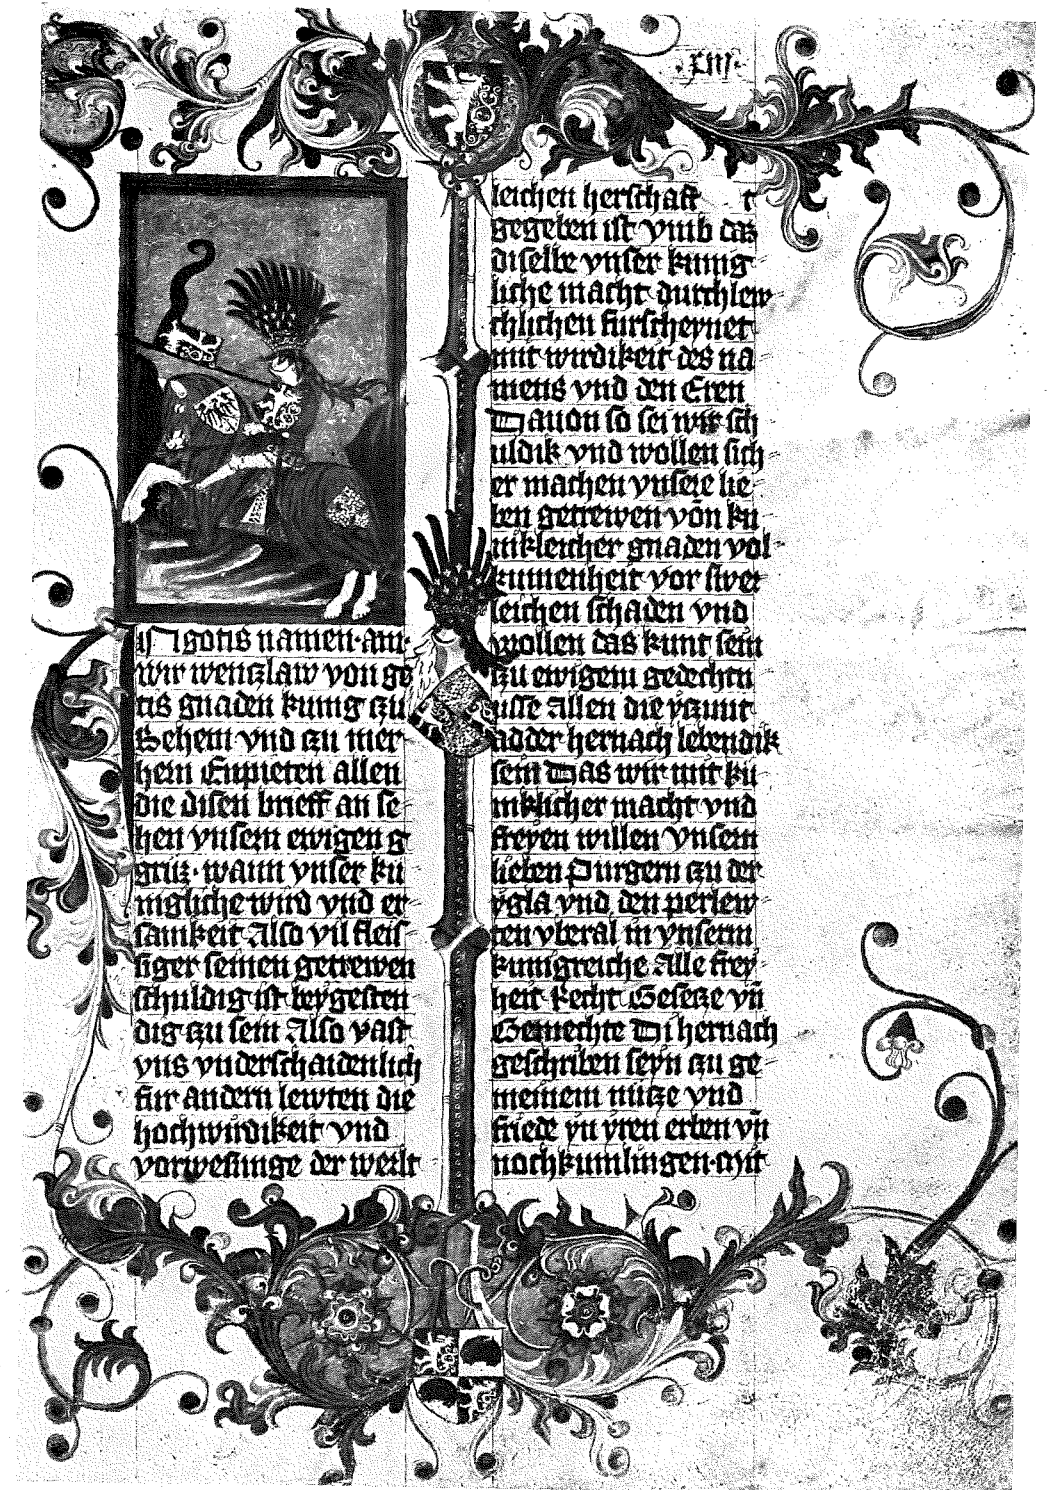 .xiii.
In gotis namen·am·
wir wenczlaw von go
tis gnaden kunig czu
Behem vnd czu mer
hern Enpieten allen
die disen brieff an se
hen vnsern ewigen g
gruz· wann vnser ku
nigliche wird vnd er
samkeit Also vil fleis
siger seinen getrewen
schuldig ist beygesten
dig czu sein Also vast
vns vnderschaidenlich
fur andern lewten die
hochwirdikeit vnd
vorwesunge der werlt
leichen herschaft
gegeben ist vmb das
diselbe vnser kunig
liche macht durchlew
chlichen furscheynet
mit wirdikeit des na
mens vnd den Eren
Dauon so sei wir sch
uldik vnd wollen sich
er machen vnsere lie
ben getrewen võn ku
nikleicher gnaden vol
kumenheit vor swer
leichen schaden vnd
wollen das kunt sein
czu ewigem gedechtn
usse Allen die yczunt
adder hernach lebendik
sein Das wir mit ku
niklicher macht vnd
freyen willen vnsern
lieben Purgern czu der
ygla vnd den perlew
ten vberal in vnserm
kunigreiche Alle frey
heit Recht Gesetze vñ
Gemechte Di hernach
geschriben seyn czu ge
meinem nutze vnd
friede yn yren erben vñ
nochkumlingen·Mit